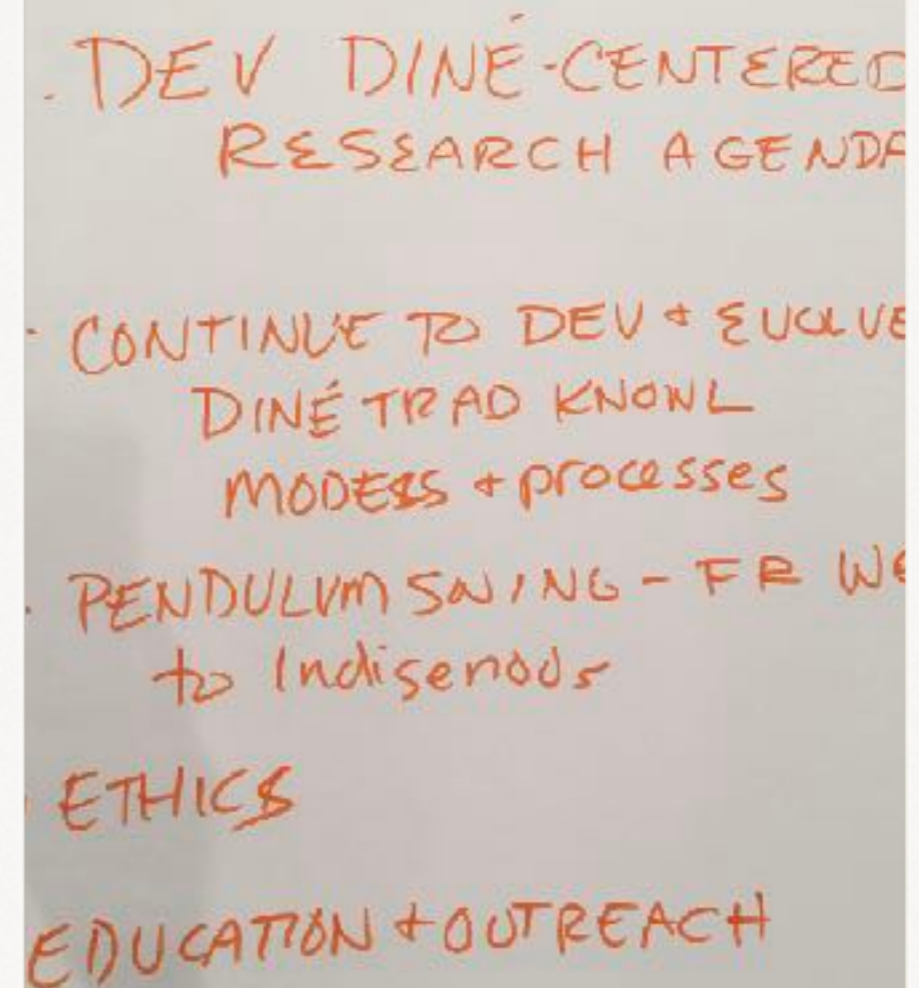 - DEV DINÉ-CENTERED
RESEARCH AGENDA
- CONTINUE TO DEV + EVOLVE
DINÉ TRAD KNOWL
MODELS + processes
- PENDULUM SWING - FR WE
to Indigenous
- ETHICS
EDUCATION + OUTREACH